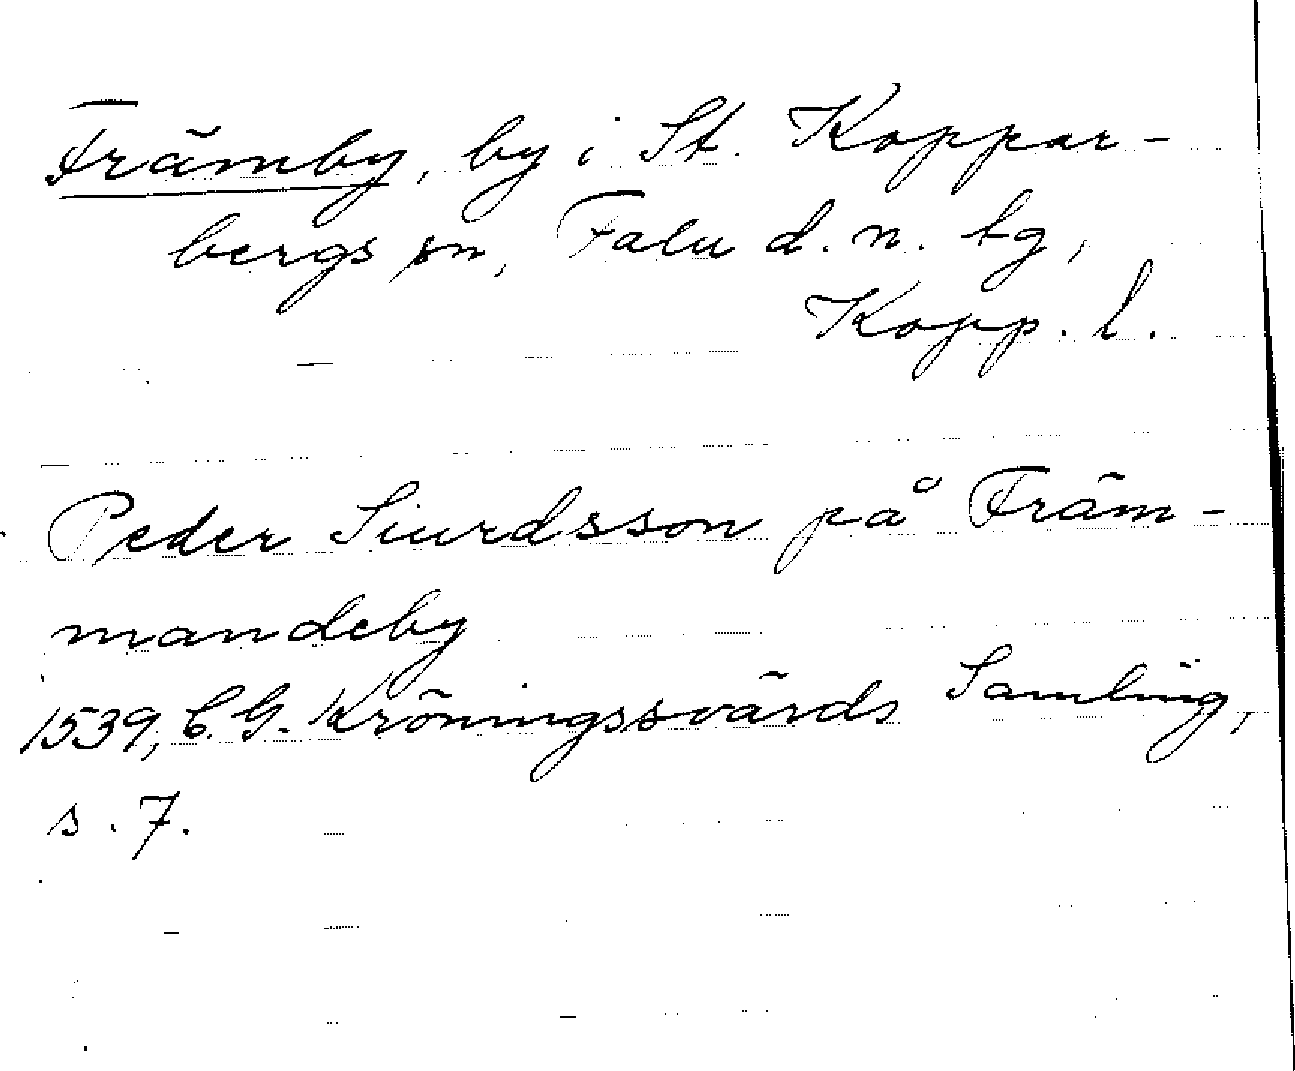 Främby, by i St. Koppar-
bergs sn, Falu d. n. tg,
Kopp. l.
Peder Siurdsson på Främ-
mandeby
1539, C. G. Kröningssvärds Samling,
s. 7.